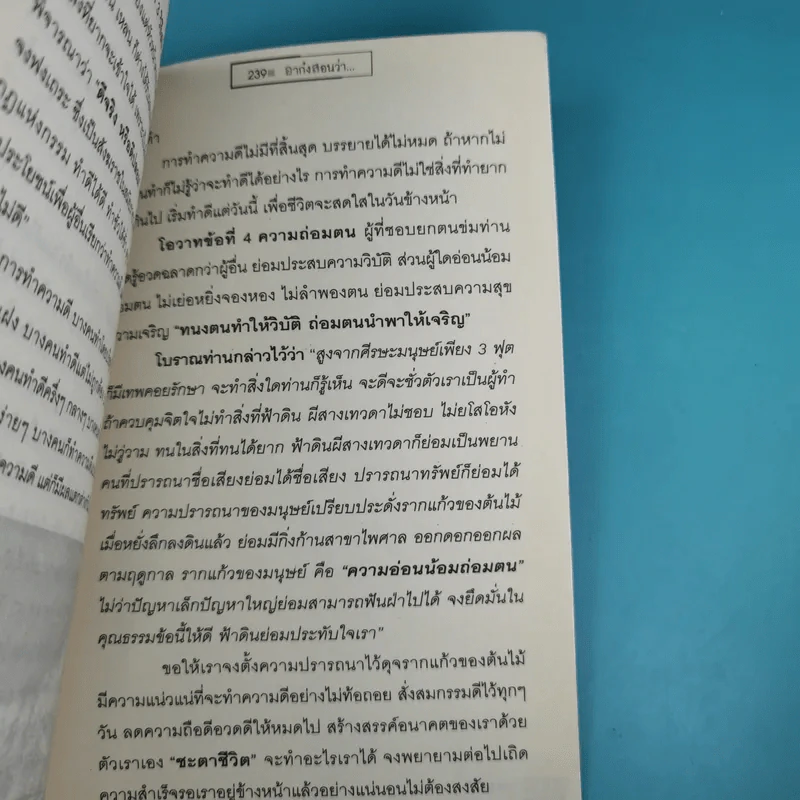 พิจารณาว่า "ดีจริง หรือ
จงฟังเถระ ซึ่งเป็นสังฆราช
กฎแห่งกรรม ทำดีได้ดี ทำชั่วได้
ประโยชน์เพื่อผู้อื่นเรียกว่า
ไม่ดี"
การทำความดี บางคนทำ
บางคนทำดีแต่ไม่
คนทำดีครึ่งๆ กลางๆ
ง่ายๆ บางคนก็ทำความ
ความดี แต่ก็มีผล
239 อากงสอนว่า...
การทำความดีไม่มีที่สิ้นสุด บรรยายได้ไม่หมด ถ้าหากไม่
ทำก็ไม่รู้ว่าจะทำดีได้อย่างไร การทำความดีไม่ใช่สิ่งที่ทำยาก
เกินไป เริ่มทำดีแต่วันนี้ เพื่อชีวิตจะสดใสในวันข้างหน้า
โอวาทข้อที่ 4 ความถ่อมตน ผู้ที่ชอบยกตนข่มท่าน
รู้อวดฉลาดกว่าผู้อื่น ย่อมประสบความวิบัติ ส่วนผู้ใดอ่อนน้อม
ถ่อมตน ไม่เย่อหยิ่งจองหอง ไม่ลำพองตน ย่อมประสบความสุข
ความเจริญ "ทนงตนทำให้วิบัติ ถ่อมตนนำพาให้เจริญ"
โบราณท่านกล่าวไว้ว่า "สูงจากศีรษะมนุษย์เพียง 3 ฟุต
ก็มีเทพคอยรักษา จะทำสิ่งใดท่านก็รู้เห็น จะดีจะชั่วตัวเราเป็นผู้ทำ
ถ้าควบคุมจิตใจไม่ทำสิ่งที่ฟ้าดิน ผีสางเทวดาไม่ชอบ ไม่ยโสโอหัง
ไม่วู่วาม ทนในสิ่งที่ทนได้ยาก ฟ้าดินผีสางเทวดาก็ย่อมเป็นพยาน
คนที่ปรารถนาชื่อเสียงย่อมได้ชื่อเสียง ปรารถนาทรัพย์ก็ย่อมได้
ทรัพย์ ความปรารถนาของมนุษย์เปรียบประดั่งรากแก้วของต้นไม้
เมื่อหยั่งลึกลงดินแล้ว ย่อมมีกิ่งก้านสาขาไพศาล ออกดอกออกผล
ตามฤดูกาล รากแก้วของมนุษย์ คือ "ความอ่อนน้อมถ่อมตน"
ไม่ว่าปัญหาเล็กปัญหาใหญ่ย่อมสามารถฟันฝ่าไปได้ จงยึดมั่นใน
คุณธรรมข้อนี้ให้ดี ฟ้าดินย่อมประทับใจเรา"
ขอให้เราจงตั้งความปรารถนาไว้ดุจรากแก้วของต้นไม้
มีความแน่วแน่ที่จะทำความดีอย่างไม่ท้อถอย สั่งสมกรรมดีไว้ทุกๆ
วัน ลดความถือดีอวดดีให้หมดไป สร้างสรรค์อนาคตของเราด้วย
ตัวเราเอง "ชะตาชีวิต" จะทำอะไรเราได้ จงพยายามต่อไปเถิด
ความสำเร็จรอเราอยู่ข้างหน้าแล้วอย่างแน่นอนไม่ต้องสงสัย